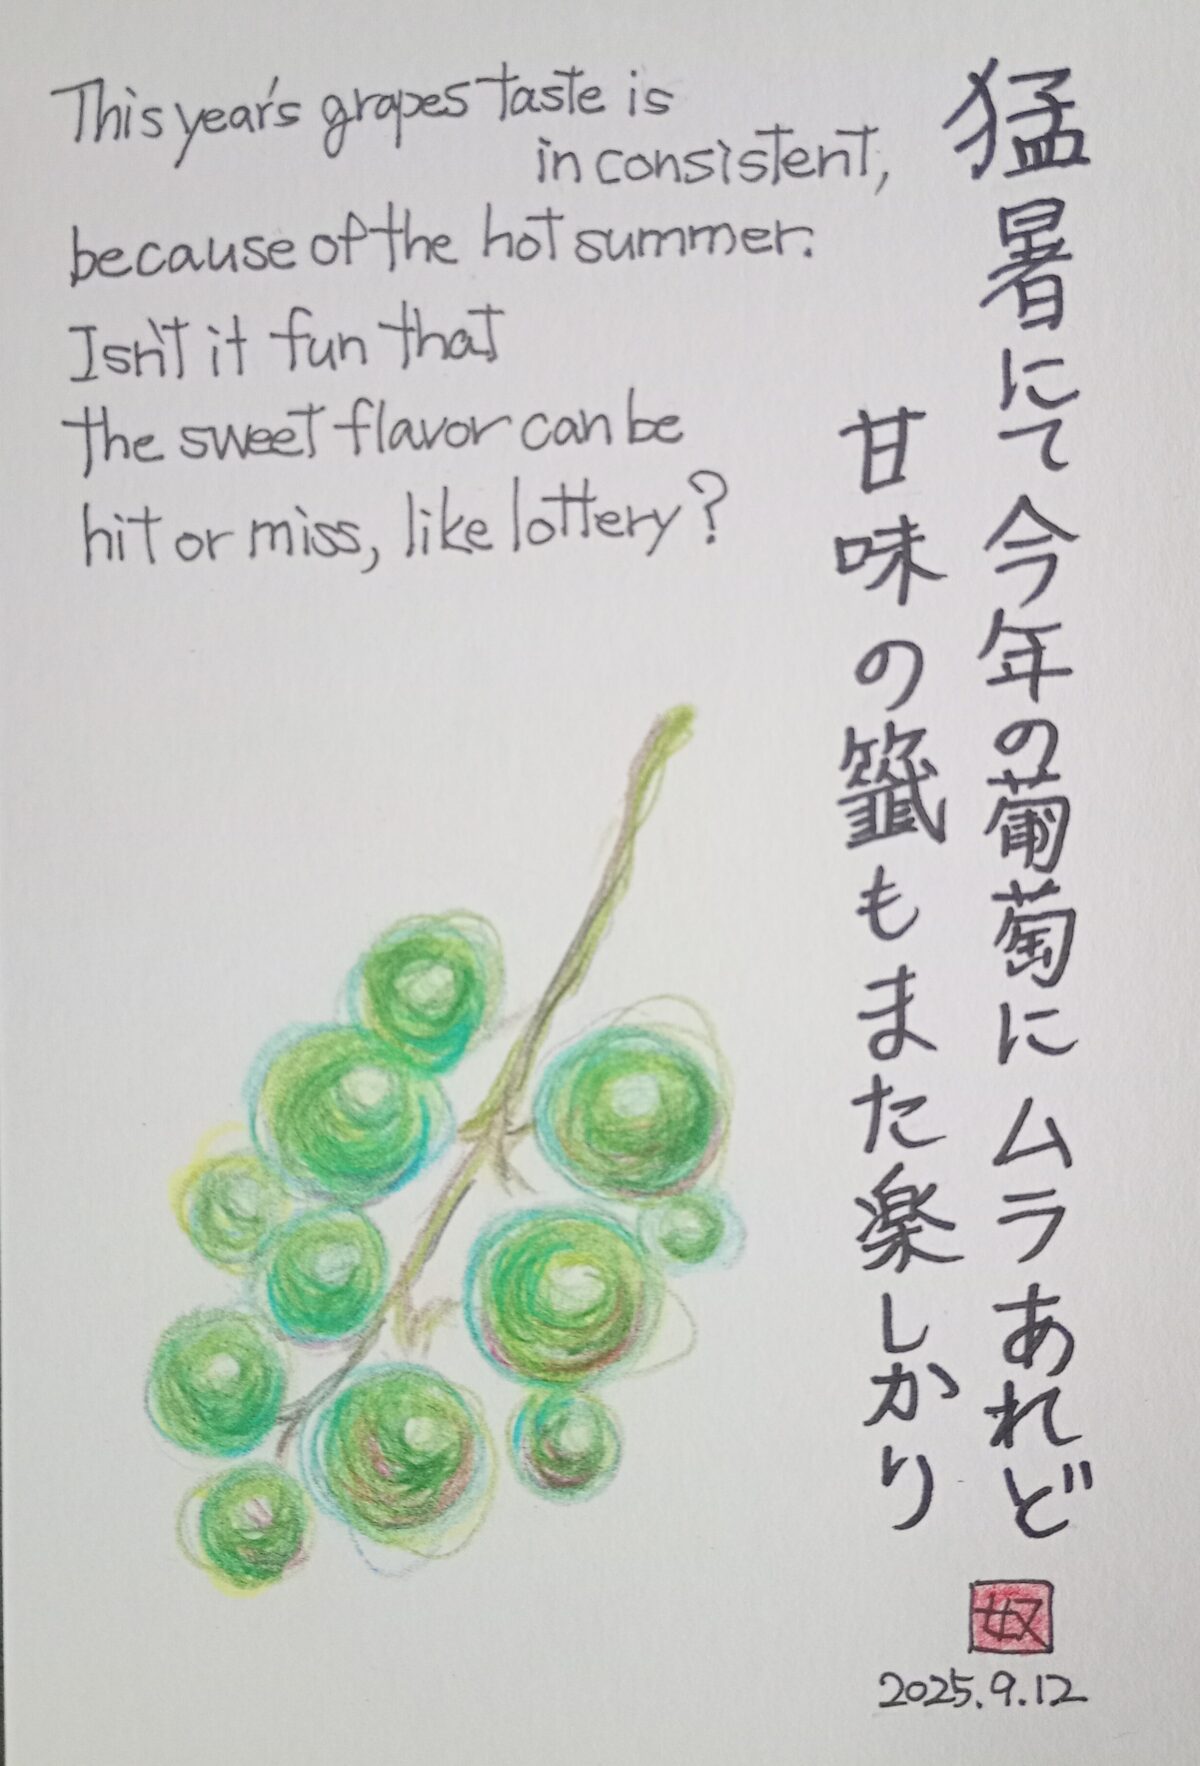 This year's grapes taste is
inconsistent,
because of the hot summer.
Isn't it fun that
the sweet flavor can be
hit or miss, like lottery?
猛暑にて今年の葡萄にムラあれど
甘味の籤もまた楽しかり
奴
2025.9.12